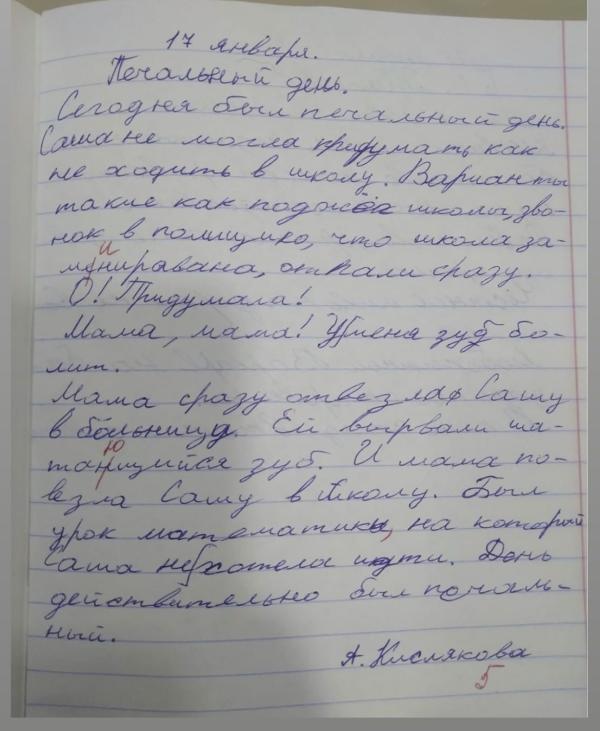 17 января.
Печальный день.
Сегодня был печальный день.
Саша не могла придумать как
не ходить в школу. Варианты
такие как поджёг школы, зво-
нок в полицию, что школа за-
минирована, отпали сразу.
О! Придумала!
Мама, мама! У меня зуб бо-
лит.
Мама сразу отвезла Сашу
в больницу. Ей вырвали ша-
тающийся зуб. И мама по-
везла Сашу в школу. Был
урок математики, на который
Саша не хотела идти. День
действительно был печаль-
ный.
А. Кислякова
5